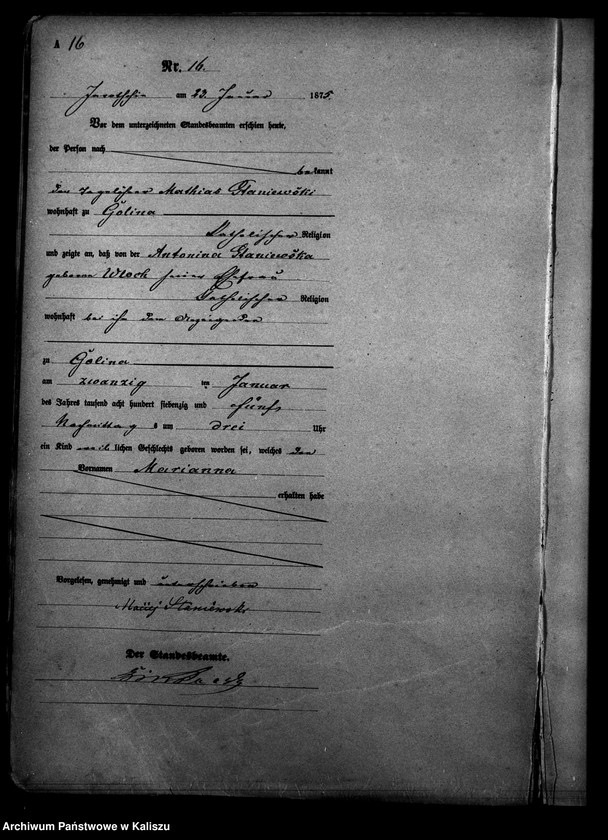 A 16
Nr. 16.
Jarotschin am 22. Januar 1875.
Vor dem unterzeichneten Standesbeamten erschien heute,
der Person nach
bekannt
der Tagelöhner Mathias Staniewski
wohnhaft zu Golina
katholischer Religion
und zeigte an, daß von der Antonina Staniewska
geborene Wloch seiner Ehefrau
katholischer Religion
wohnhaft bei ihm dem Anzeigenden
zu Golina
am zwanzig ten Januar
des Jahres tausend acht hundert siebenzig und fünf
Nachmittag s um drei Uhr
ein Kind weib lichen Geschlechts geboren worden sei, welches den
Vornamen Marianna
erhalten habe
Vorgelesen, genehmigt und unterschrieben
Maciej Staniewski
Der Standesbeamte.
Archiwum Państwowe w Kaliszu